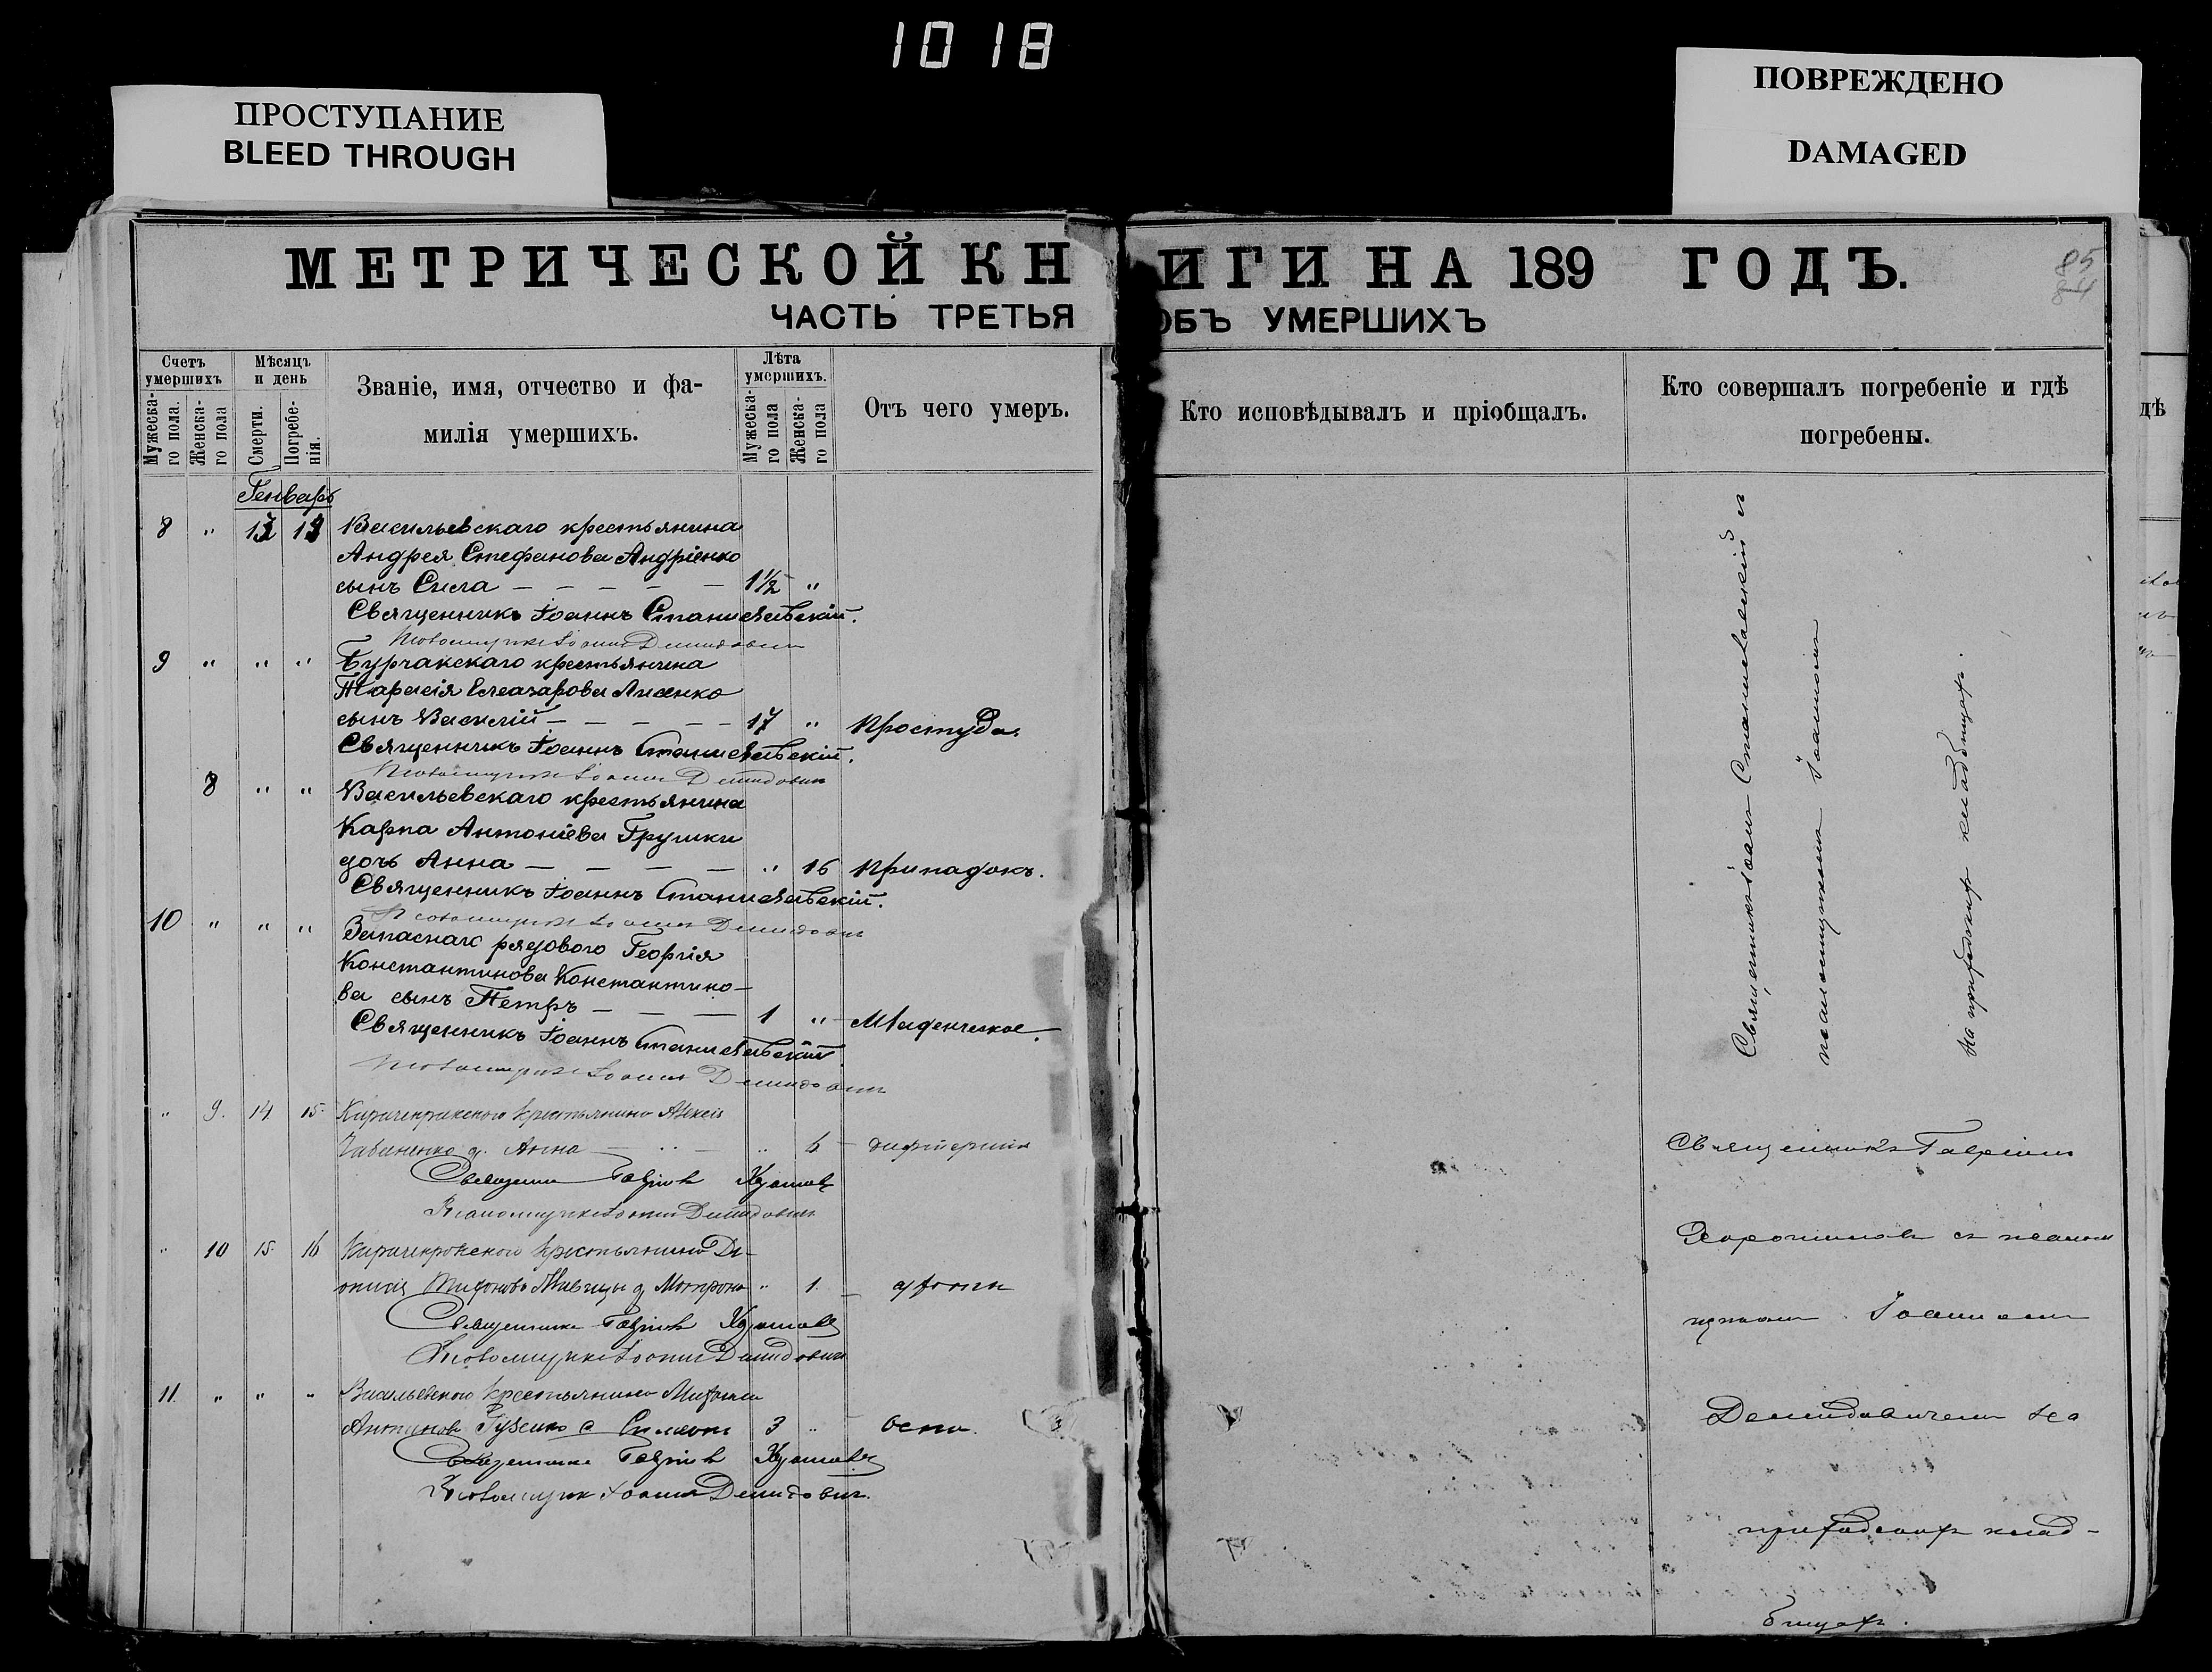 1018
ПРОСТУПАНИЕ
BLEED THROUGH
ПОВРЕЖДЕНО
DAMAGED
МЕТРИЧЕСКОЙ КНИГИ НА 189 ГОДЪ.
85
84
ЧАСТЬ ТРЕТЬЯ ОБЪ УМЕРШИХЪ
Счетъ умершихъ
Мужеска-го пола.
Женска-го пола
Мѣсяцъ и день
Смерти.
Погребе-нія.
Званіе, имя, отчество и фа-
милія умершихъ.
Лѣта умершихъ.
Мужеска-го пола
Женска-го пола
Отъ чего умеръ.
Кто исповѣдывалъ и пріобщалъ.
Кто совершалъ погребеніе и гдѣ
погребены.
дѣ
Генварь
8 " Васильевскаго крестьянина
Андрея Стефанова Андріенко
сынъ Сила — — — — — 1½ "
Священникъ Іоаннъ Станиславскій.
Псаломщикъ Іоаннъ Демидовичъ
9 " " " Бурчакскаго крестьянина
Тарасія Елеазарова Лисенко
сынъ Василій — — — — — 17 " Простуда.
Священникъ Іоаннъ Станиславскій.
Псаломщикъ Іоаннъ Демидовичъ
8 " " Васильевскаго крестьянина
Карпа Антоніева Грушки
дочь Анна — — — — — " 16 Припадокъ.
Священникъ Іоаннъ Станиславскій.
Псаломщикъ Іоаннъ Демидовичъ
10 " " " Запаснаго рядового Георгія
Константинова Константино-
ва сынъ Петръ — — — 1 " Младенческое.
Священникъ Іоаннъ Станиславскій
Псаломщикъ Іоаннъ Демидовичъ
" 9. 14 15. крестьянина Алексія
д. Анна — " 6 — дифтеритъ
Священникъ Гавріилъ
Псаломщикъ Іоаннъ Демидовичъ
" 10 15. 16 крестьянина Ді-
онисія д. Матрона " 1.
Священникъ Гавріилъ
Псаломщикъ Іоаннъ Демидовичъ
11. " " " Васильевскаго крестьянина
с. Симеонъ 3 " оспа.
Священникъ Гавріилъ
Псаломщикъ Іоаннъ Демидовичъ.
Священникъ Іоаннъ Станиславскій съ
псаломщикомъ Іоанномъ
на приходскомъ кладбищѣ.
Священникъ Гавріилъ
съ псалом
щикомъ Іоанномъ
Демидовичемъ на
приходскомъ клад-
бищѣ.